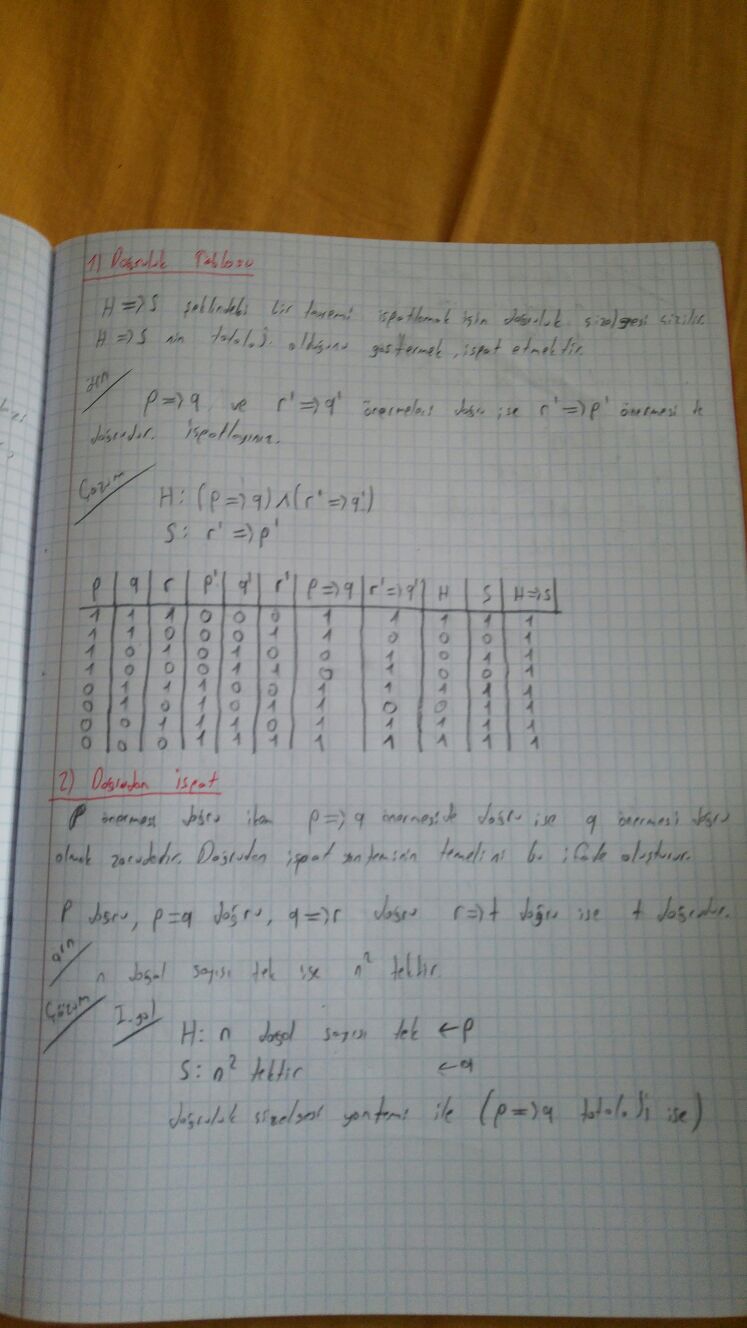 1) Doğruluk Tablosu
H => S şeklindeki bir teoremi ispatlamak için doğruluk çizelgesi çizilir.
H => S nin totoloji olduğunu göstermek, ispat etmektir.
örn
p => q ve r' => q' önermeleri doğru ise r' => p' önermesi de
doğrudur. İspatlayınız.
Çözüm
H: (p => q) ∧ (r' => q')
S: r' => p'
p | q | r | p' | q' | r' | p => q | r' => q' | H | S | H => S
1 1 1 0 0 0 1 1 1 1 1
1 1 0 0 0 1 1 0 0 0 1
1 0 1 0 1 0 0 1 0 1 1
1 0 0 0 1 1 0 1 0 0 1
0 1 1 1 0 0 1 1 1 1 1
0 1 0 1 0 1 1 0 0 1 1
0 0 1 1 1 0 1 1 1 1 1
0 0 0 1 1 1 1 1 1 1 1
2) Doğrudan ispat
p önermesi doğru iken p => q önermeside doğru ise q önermesi doğru
olmak zorundadır. Doğrudan ispat yönteminin temelini bu ifade oluşturur.
p doğru, p = q doğru, q => r doğru r => t doğru ise t doğrudur.
örn
n doğal sayısı tek ise n² tektir
Çözüm
I. yol
H: n doğal sayısı tek ← p
S: n² tektir ← q
doğruluk çizelgesi yöntemi ile (p => q totoloji ise)